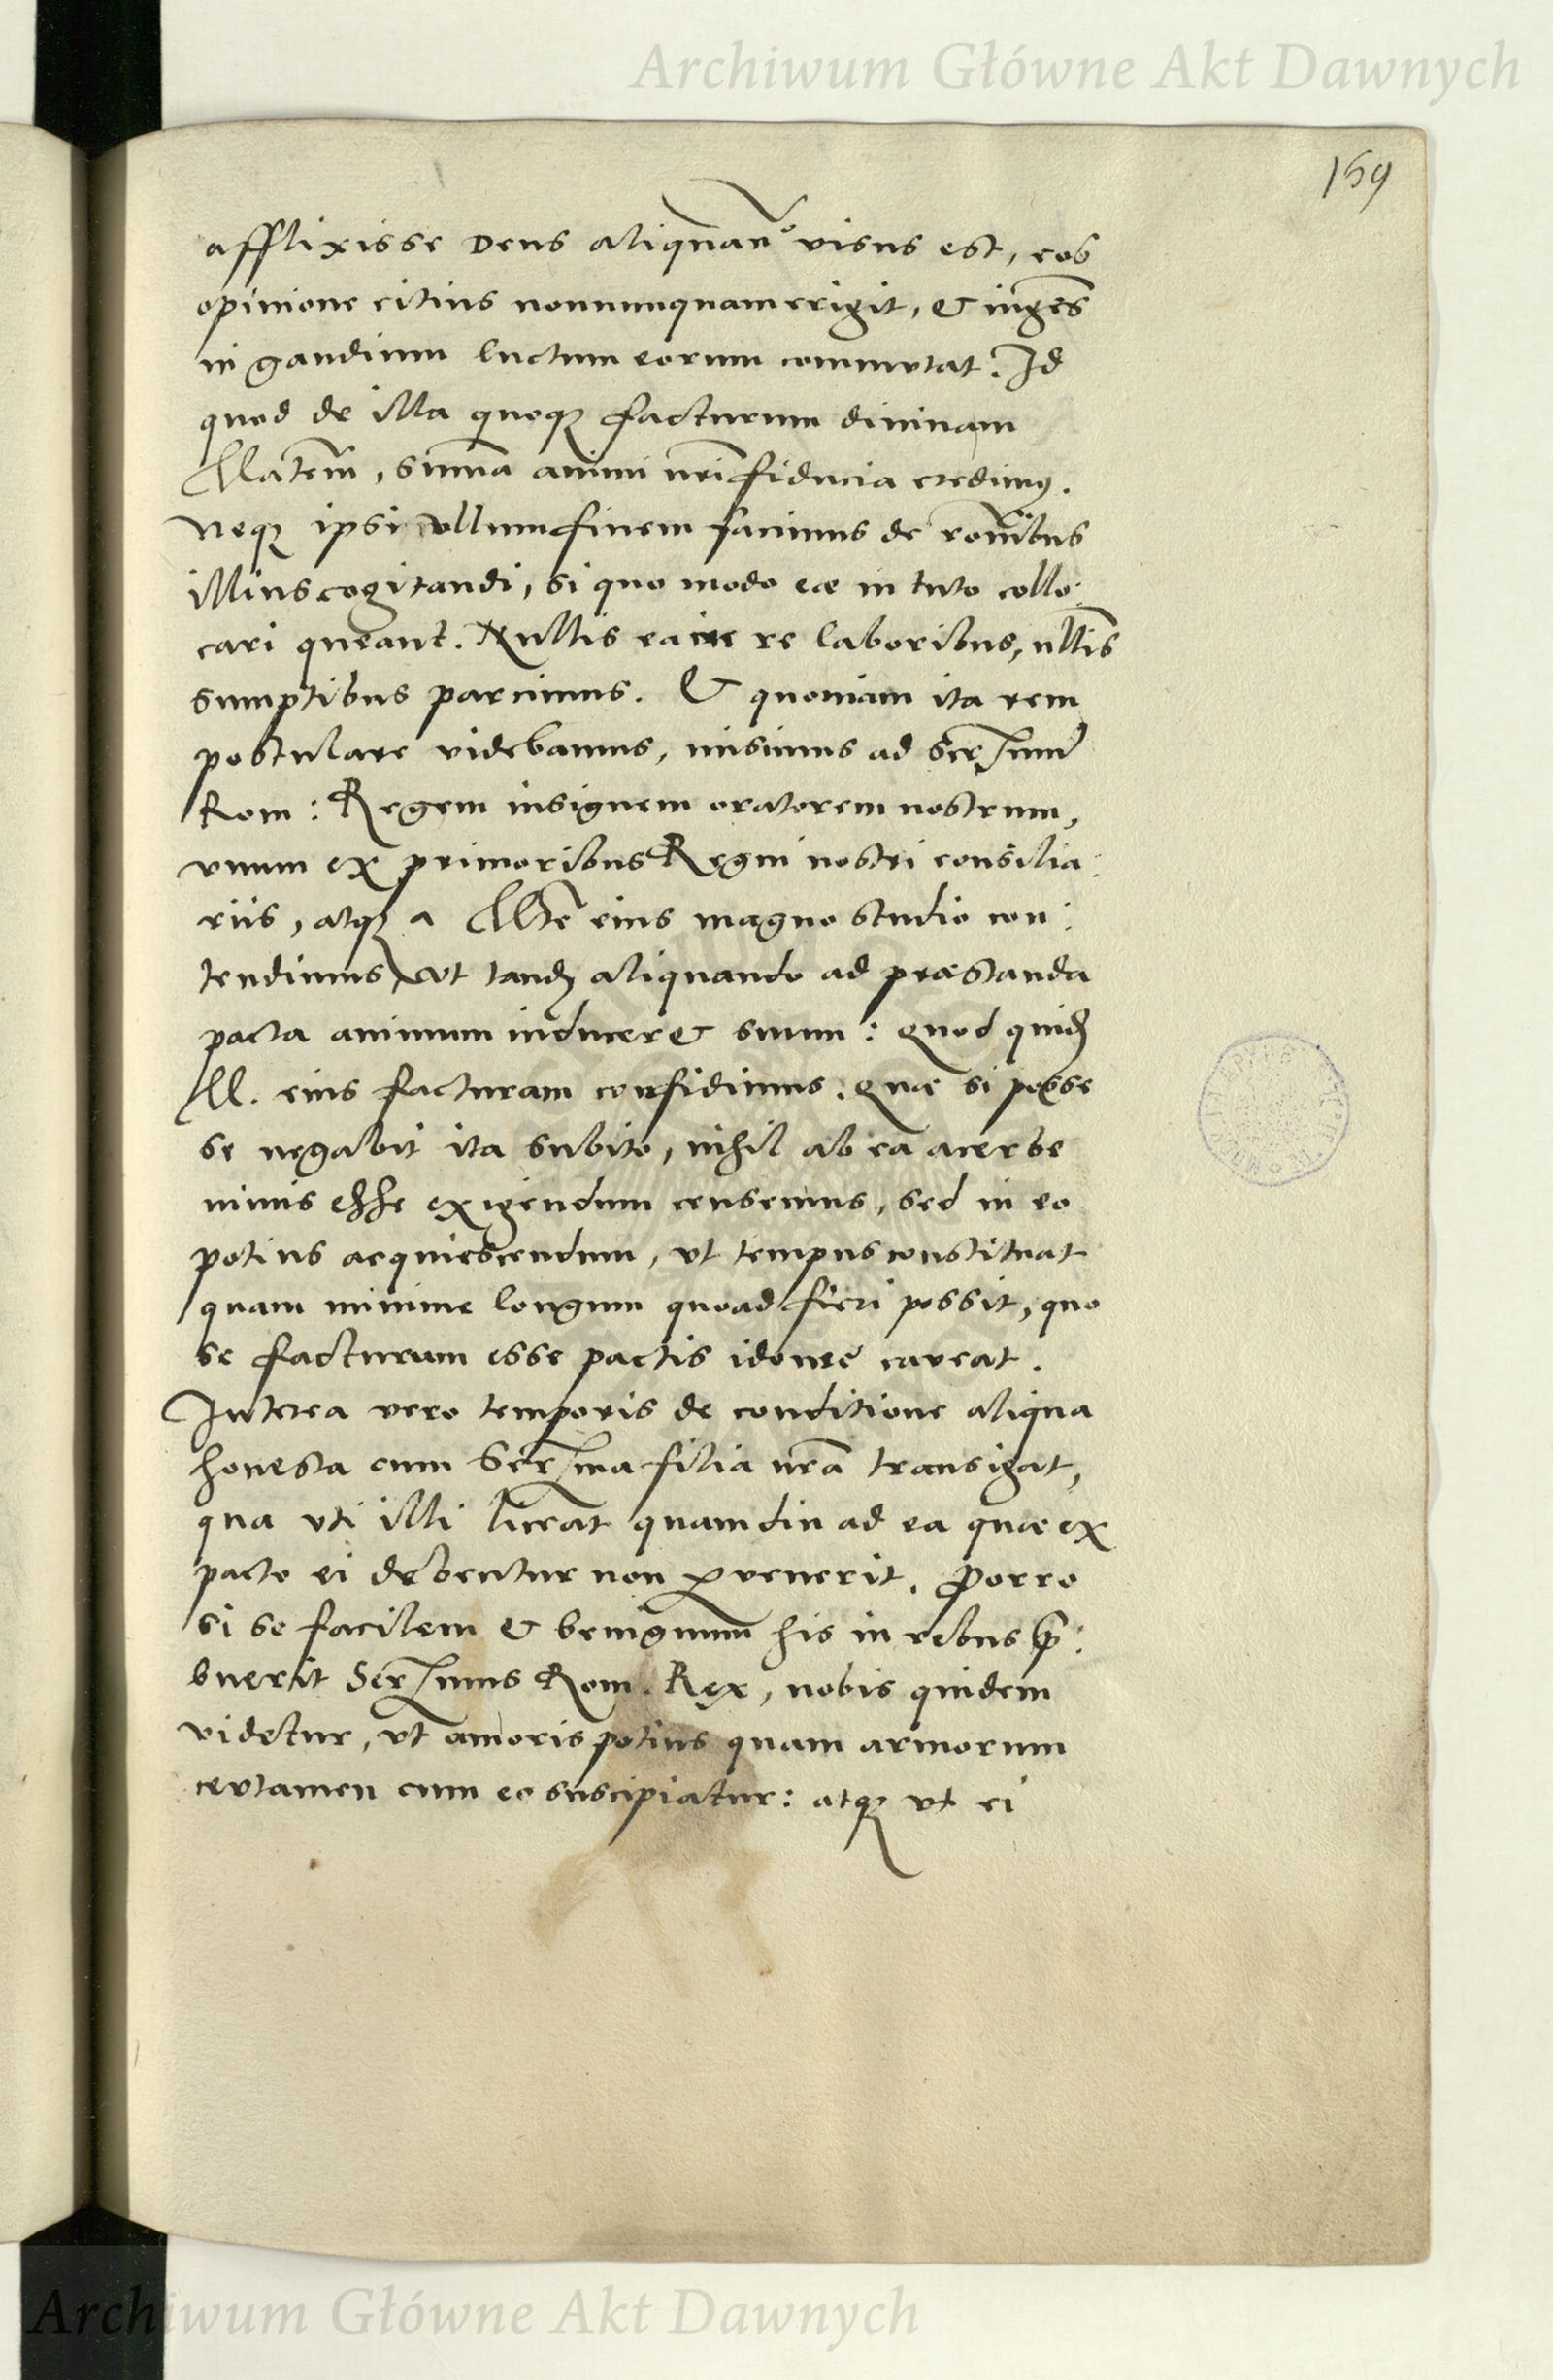 Archiwum Główne Akt Dawnych
159
afflixisse Deus aliquan̄o visus est, eos
opinione citius nonnunquam erigit, & inge͂s
in gaudium luctum eorum commutat. Id
quod de illa quoqꝫ facturum diuinam
Maτem̃, summa animi nr̃i fiducia credimꝰ.
Neqꝫ ipsi vllum finem facimus de ronibus
illius cogitandi, si quo modo eæ in tuto collo:
cari queant. Nullis ea in re laboribus, ullis
sumptibus parcimus. & quoniam ita rem
postulare videbamus, misimus ad Serꝭimũ
Rom: Regem insignem oratorem nostrum,
vnum ex primoribus Regni nostri consilia:
riis, atqꝫ a Mte eius magno studio con:
tendimus, vt tandꝫ aliquando ad præstanda
pacta animum induceret suum: quod quidꝫ
M. eius facturam confidimus. quæ si posse
se negabit ita subito, nihil ab ea acerbe
nimis esse exigendum censemus, sed in eo
potius acquiescendum, vt tempus constituat
quam minime longum quoad fieri possit, quo
se facturum esse pactis idonee caveat.
Interea vero temporis de conditione aliqua
honesta cum Serꝭima filia nr̃a transigat,
qua vti illi liceat quamdiu ad ea quæ ex
pacto ei debentur non ꝑvenerit. Porro
si se facilem & benignum his in rebus p̃:
buerit Serꝭimus Rom. Rex, nobis quidem
videtur, vt amoris potius quam armorum
certamen cum eo suscipiatur: atqꝫ vt ei
Archiwum Główne Akt Dawnych